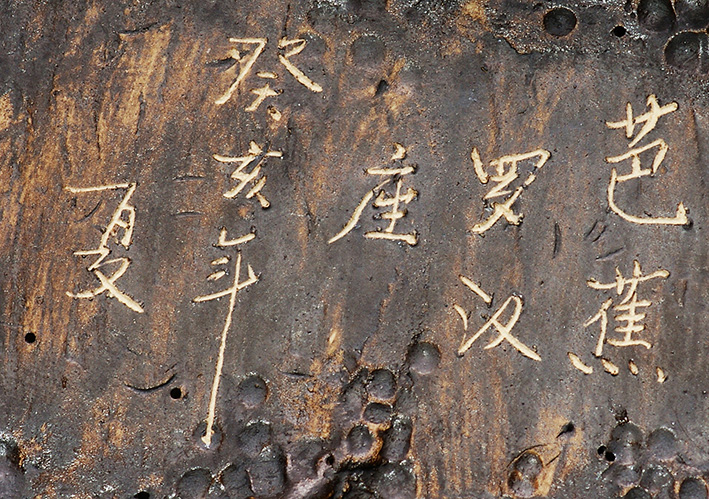 芭蕉
罗汉
座
癸亥年
夏